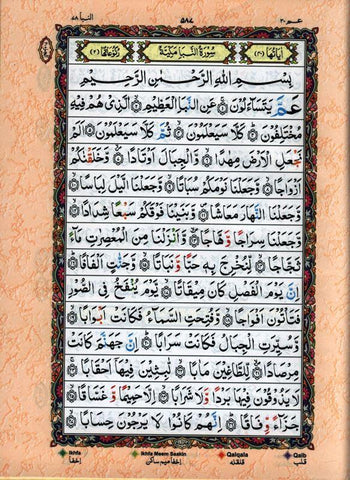 عـم ٣٠
٥٨٧
النبا ٧٨
اٰیَاتُهَا (٤٠) سُوْرَةُ النَّبَاِ مَكِّیَّةٌ رُكُوْعَاتُهَا (٢)
بِسْمِ اللّٰهِ الرَّحْمٰنِ الرَّحِیْمِ
عَمَّ یَتَسَآءَلُوْنَ ۝ عَنِ النَّبَاِ الْعَظِیْمِ ۝ الَّذِیْ هُمْ فِیْهِ
مُخْتَلِفُوْنَ ۝ كَلَّا سَیَعْلَمُوْنَ ۝ ثُمَّ كَلَّا سَیَعْلَمُوْنَ ۝ اَلَمْ
نَجْعَلِ الْاَرْضَ مِهٰدًا ۝ وَّالْجِبَالَ اَوْتَادًا ۝ وَّخَلَقْنٰكُمْ
اَزْوَاجًا ۝ وَّجَعَلْنَا نَوْمَكُمْ سُبَاتًا ۝ وَّجَعَلْنَا الَّیْلَ لِبَاسًا ۝
وَّجَعَلْنَا النَّهَارَ مَعَاشًا ۝ وَّبَنَیْنَا فَوْقَكُمْ سَبْعًا شِدَادًا ۝
وَّجَعَلْنَا سِرَاجًا وَّهَّاجًا ۝ وَّاَنْزَلْنَا مِنَ الْمُعْصِرٰتِ مَآءً
ثَجَّاجًا ۝ لِّنُخْرِجَ بِهٖ حَبًّا وَّنَبَاتًا ۝ وَّجَنّٰتٍ اَلْفَافًا ۝
اِنَّ یَوْمَ الْفَصْلِ كَانَ مِیْقَاتًا ۝ یَّوْمَ یُنْفَخُ فِی الصُّوْرِ
فَتَاْتُوْنَ اَفْوَاجًا ۝ وَّفُتِحَتِ السَّمَآءُ فَكَانَتْ اَبْوَابًا ۝
وَّسُیِّرَتِ الْجِبَالُ فَكَانَتْ سَرَابًا ۝ اِنَّ جَهَنَّمَ كَانَتْ
مِرْصَادًا ۝ لِّلطَّاغِیْنَ مَاٰبًا ۝ لّٰبِثِیْنَ فِیْهَاۤ اَحْقَابًا ۝
لَا یَذُوْقُوْنَ فِیْهَا بَرْدًا وَّلَا شَرَابًا ۝ اِلَّا حَمِیْمًا وَّغَسَّاقًا ۝
جَزَآءً وِّفَاقًا ۝ اِنَّهُمْ كَانُوْا لَا یَرْجُوْنَ حِسَابًا ۝
Ikhfa Ikhfa Meem Saakin Qalqala Qalb
اخفا اخفا میم ساکن قلقلہ قلب